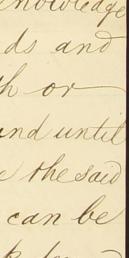 knowledge
ds and
th or
und until
e the said
can be